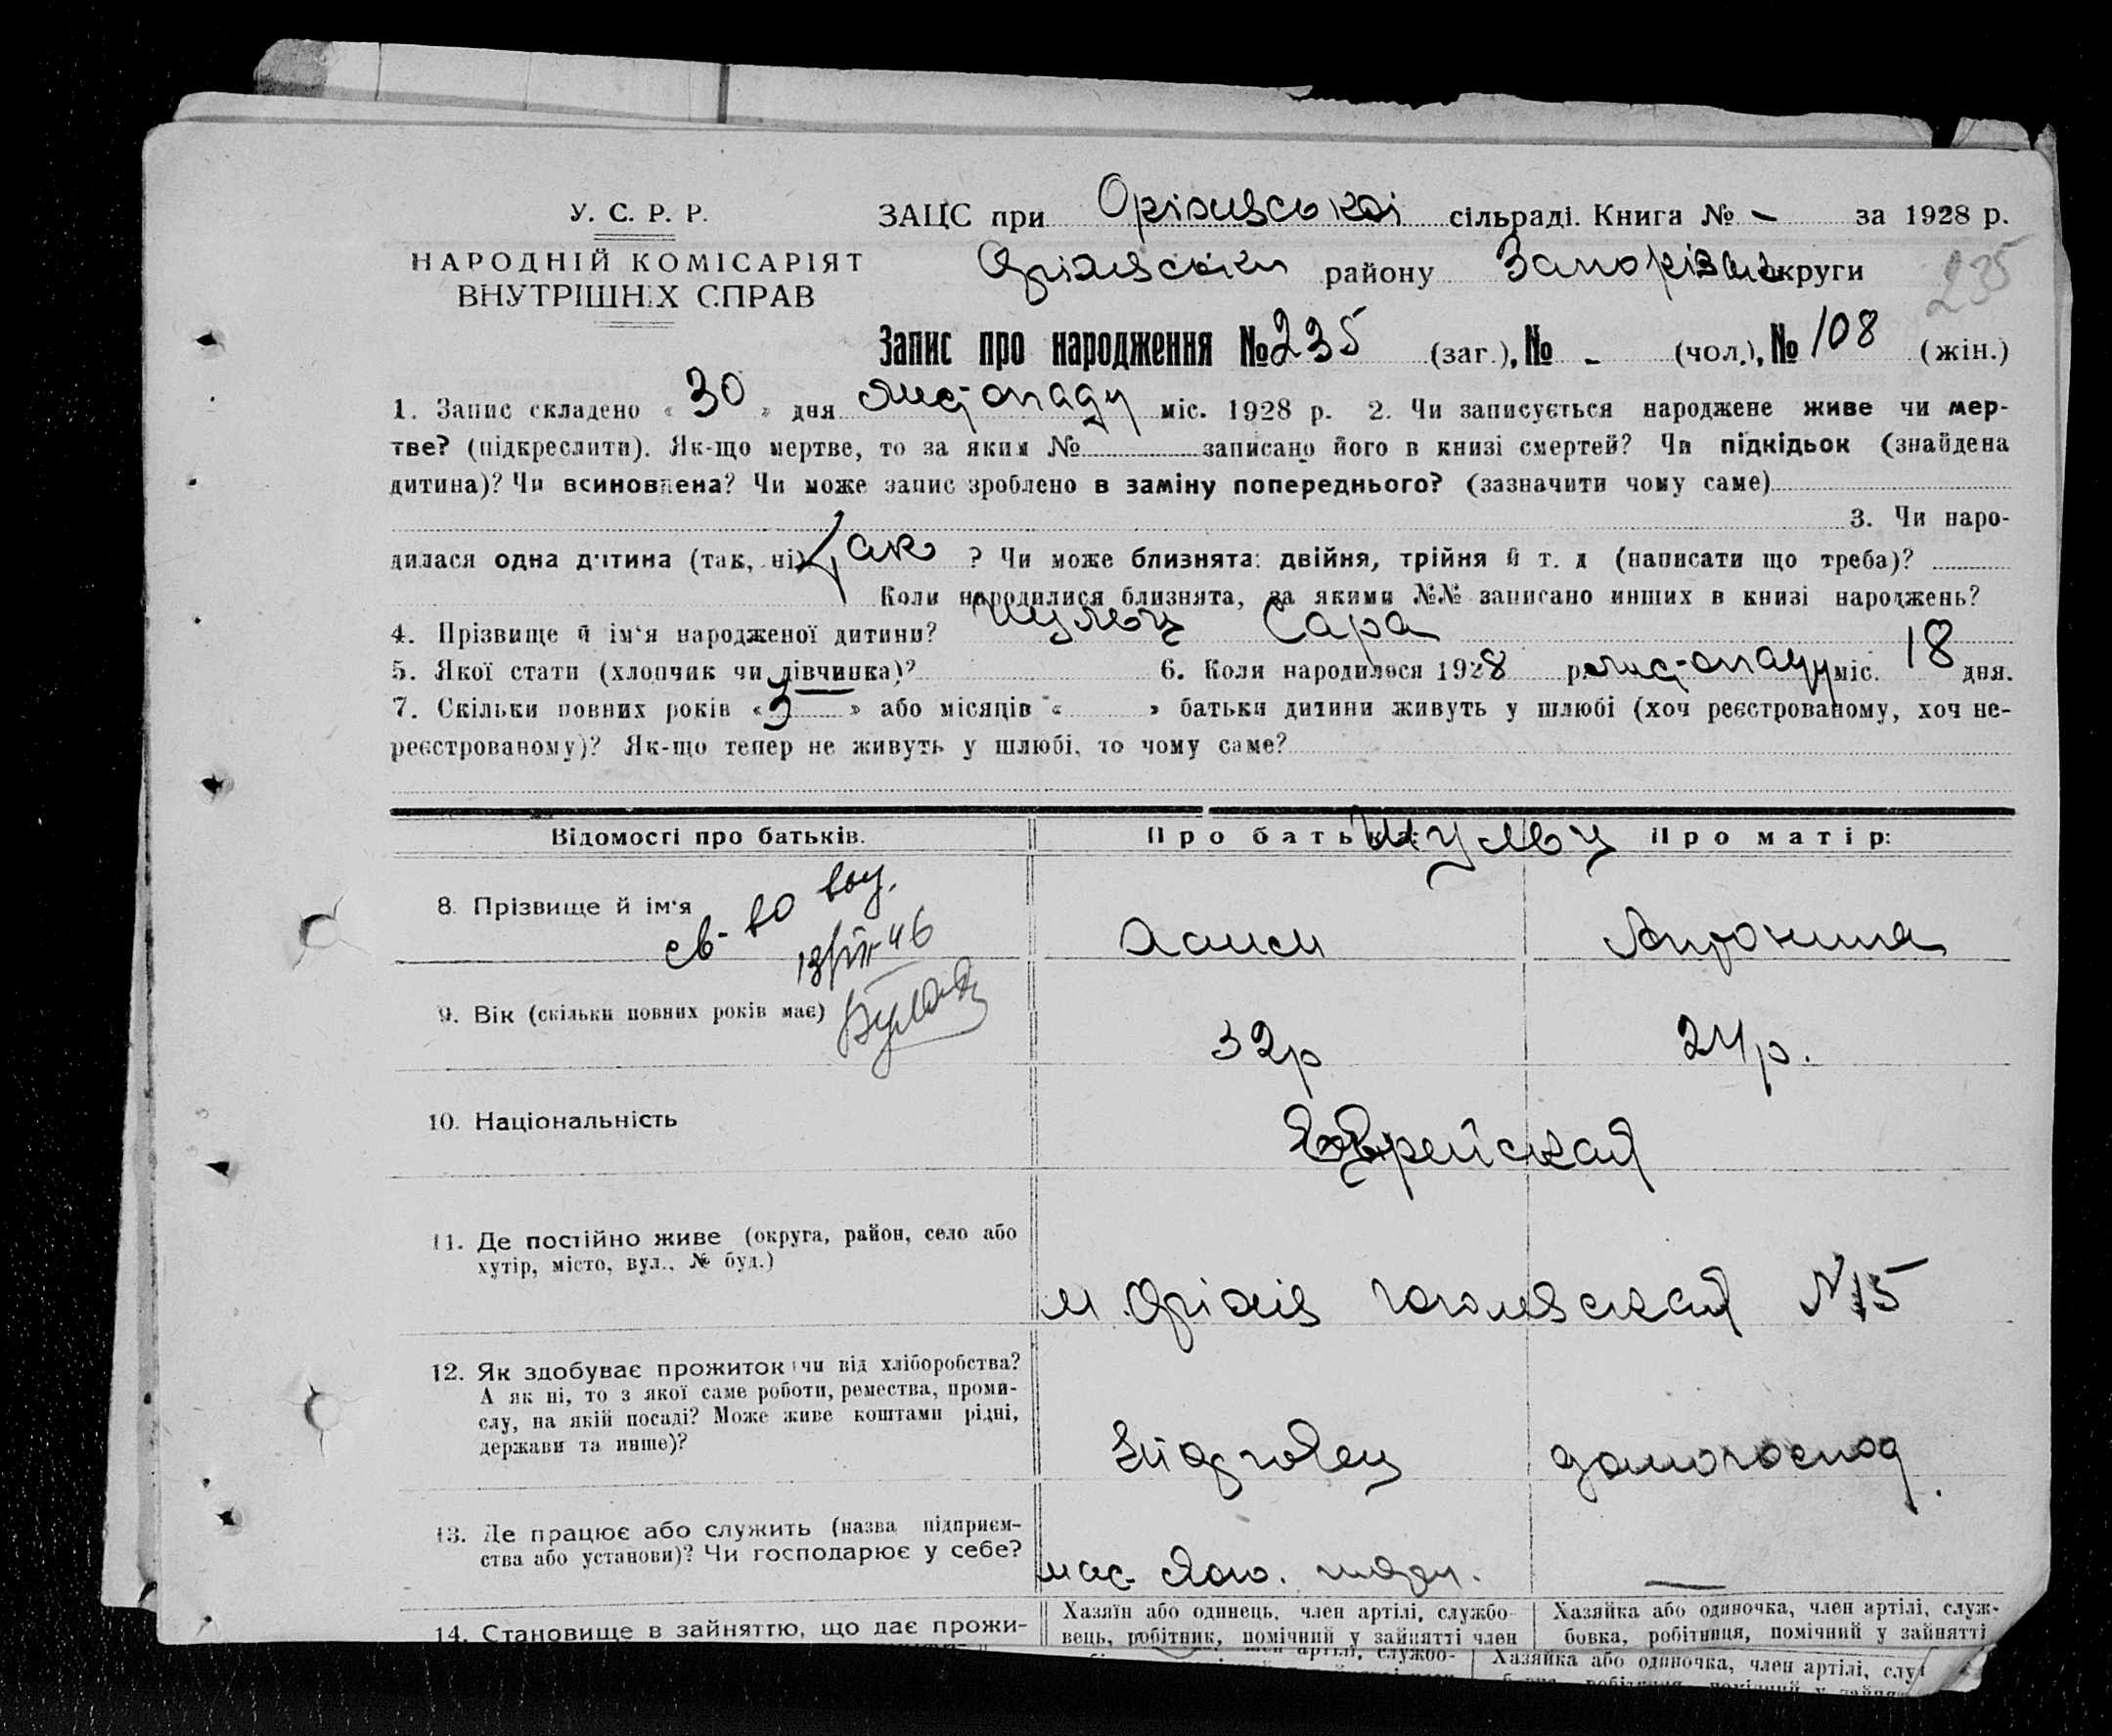 У. С. Р. Р.
НАРОДНІЙ КОМІСАРІЯТ
ВНУТРІШНІХ СПРАВ
ЗАЦС при Оріхівської сільраді. Книга № - за 1928 р.
Оріхівськ району Запоріз округи
235
Запис про народження № 235 (заг.), № - (чол.), № 108 (жін.)
1. Запис складено « 30 » дня листопаду міс. 1928 р. 2. Чи записується народжене живе чи мер-
тве? (підкреслити). Як-що мертве, то за яким № записано його в книзі смертей? Чи підкідьок (знайдена
дитина)? Чи всиновлена? Чи може запис зроблено в заміну попереднього? (зазначити чому саме)
3. Чи наро-
дилася одна дитина (так, ні) Так ? Чи може близнята: двійня, трійня й т. д (написати що треба)?
Коли народилися близнята, за якими №№ записано инших в книзі народжень?
4. Прізвище й ім'я народженої дитини? Шульц Сара
5. Якої стати (хлопчик чи дівчинка)? 6. Коли народилося 1928 р. листопаду міс. 18 дня.
7. Скільки повних років « 3 » або місяців « » батьки дитини живуть у шлюбі (хоч реєстрованому, хоч не-
реєстрованому)? Як-що тепер не живуть у шлюбі, то чому саме?
Відомості про батьків. Про батька: Шульц Про матір:
8. Прізвище й ім'я Хаим Антонина
св-во выд.
13/VII-46
9. Вік (скільки повних років має) 32р 24р.
10. Національність Еврейская
11. Де постійно живе (округа, район, село або
хутір, місто, вул., № буд.)
м. Оріхів Гоголевская №15
12. Як здобуває прожиток чи від хліборобства?
А як ні, то з якої саме роботи, ремества, проми-
слу, на якій посаді? Може живе коштами рідні,
держави та инше)?
домогоспод.
13. Де працює або служить (назва підприєм-
ства або установи)? Чи господарює у себе?
—
14. Становище в зайняттю, що дає прожи-
Хазяїн або одинець, член артілі, службо-
вець, робітник, помічний у зайнятті член
Хазяйка або одиночка, член артілі, служ-
бовка, робітниця, помічний у зайнятті
артілі, службо-
Хазяйка або одиночка, член артілі, слу